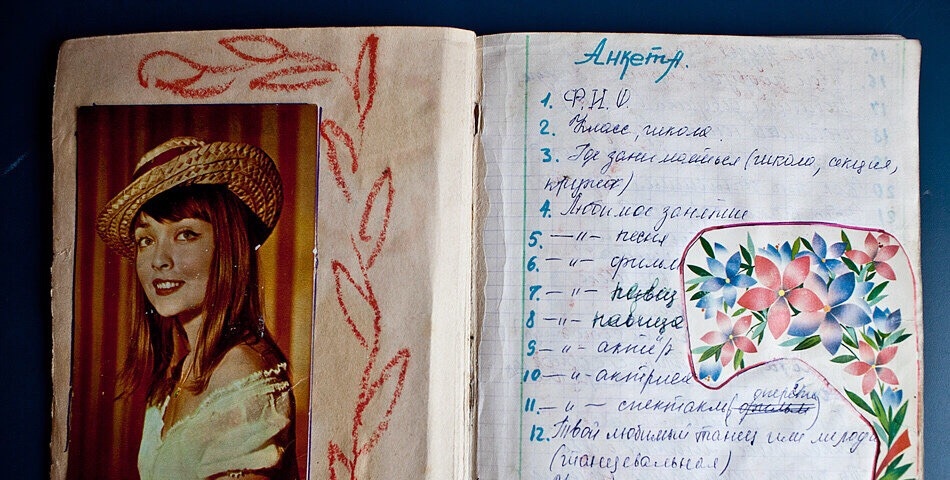 Анкета.
1. Ф.И.О.
2. Класс, школа
3. Где занимаешься (школа, секция,
кружок)
4. Любимое занятие
5. — " — песня
6. — " — фильм
7. — " — певец
8 — " — певица
9. — " — актёр
10 — " — актриса
11. — " — спектакль (оперетта
12. Твой любимый танец или мелодия
(танцевальная)